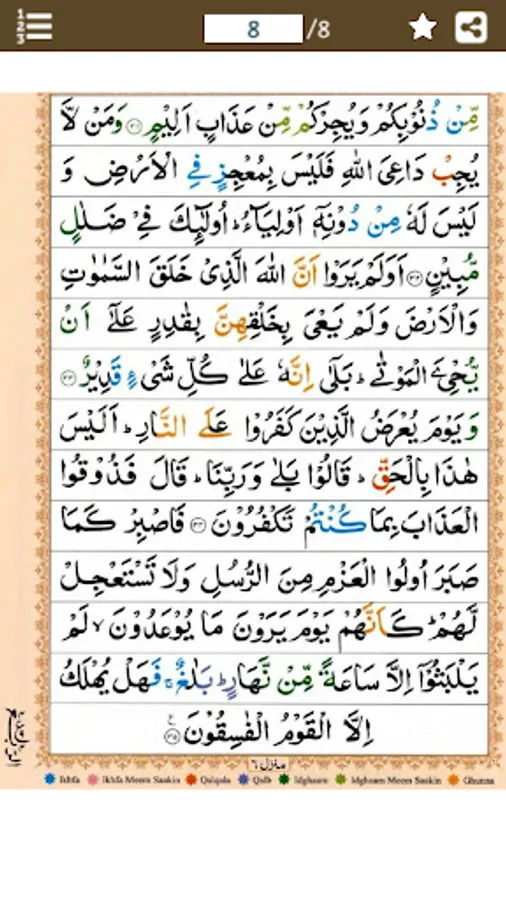 8 /8
مِّنْ ذُنُوْبِكُمْ وَيُجِرْكُمْ مِّنْ عَذَابٍ اَلِيْمٍ ۝۳۱ وَمَنْ لَّا
يُجِبْ دَاعِىَ اللّٰهِ فَلَيْسَ بِمُعْجِزٍ فِى الْاَرْضِ وَ
لَيْسَ لَهٗ مِنْ دُوْنِهٖۤ اَوْلِيَآءُ ؕ اُولٰٓئِكَ فِىْ ضَلٰلٍ
مُّبِيْنٍ ۝۳۲ اَوَلَمْ يَرَوْا اَنَّ اللّٰهَ الَّذِىْ خَلَقَ السَّمٰوٰتِ
وَالْاَرْضَ وَلَمْ يَعْىَ بِخَلْقِهِنَّ بِقٰدِرٍ عَلٰٓى اَنْ
يُّحْیِۦَ الْمَوْتٰى ؕ بَلٰٓى اِنَّهٗ عَلٰى كُلِّ شَىْءٍ قَدِيْرٌ ۝۳۳
وَ يَوْمَ يُعْرَضُ الَّذِيْنَ كَفَرُوْا عَلَى النَّارِ ؕ اَلَيْسَ
هٰذَا بِالْحَقِّ ؕ قَالُوْا بَلٰى وَرَبِّنَا ؕ قَالَ فَذُوْقُوا
الْعَذَابَ بِمَا كُنْتُمْ تَكْفُرُوْنَ ۝۳۴ فَاصْبِرْ كَمَا
صَبَرَ اُولُوا الْعَزْمِ مِنَ الرُّسُلِ وَلَا تَسْتَعْجِلْ
لَّهُمْ ؕ كَاَنَّهُمْ يَوْمَ يَرَوْنَ مَا يُوْعَدُوْنَ ۙ لَمْ
يَلْبَثُوْۤا اِلَّا سَاعَةً مِّنْ نَّهَارٍ ؕ بَلٰغٌ ۚ فَهَلْ يُهْلَكُ
اِلَّا الْقَوْمُ الْفٰسِقُوْنَ ۝۳۵
منزل ٦
Ikhfa Ikhfa Meem Saakin Qalqala Qalb Idghaam Idghaam Meem Saakin Ghunna